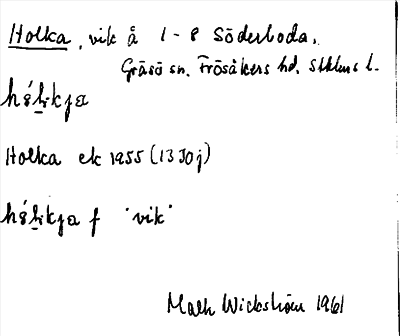 Holka, vik å 1-8 Söderboda,
Gräsö sn. Frösåkers hd. Sthlms l.
hó̀lkja
Holka ek 1955 (13I0j)
hó̀lkja f 'vik'
Math Wickström 1961